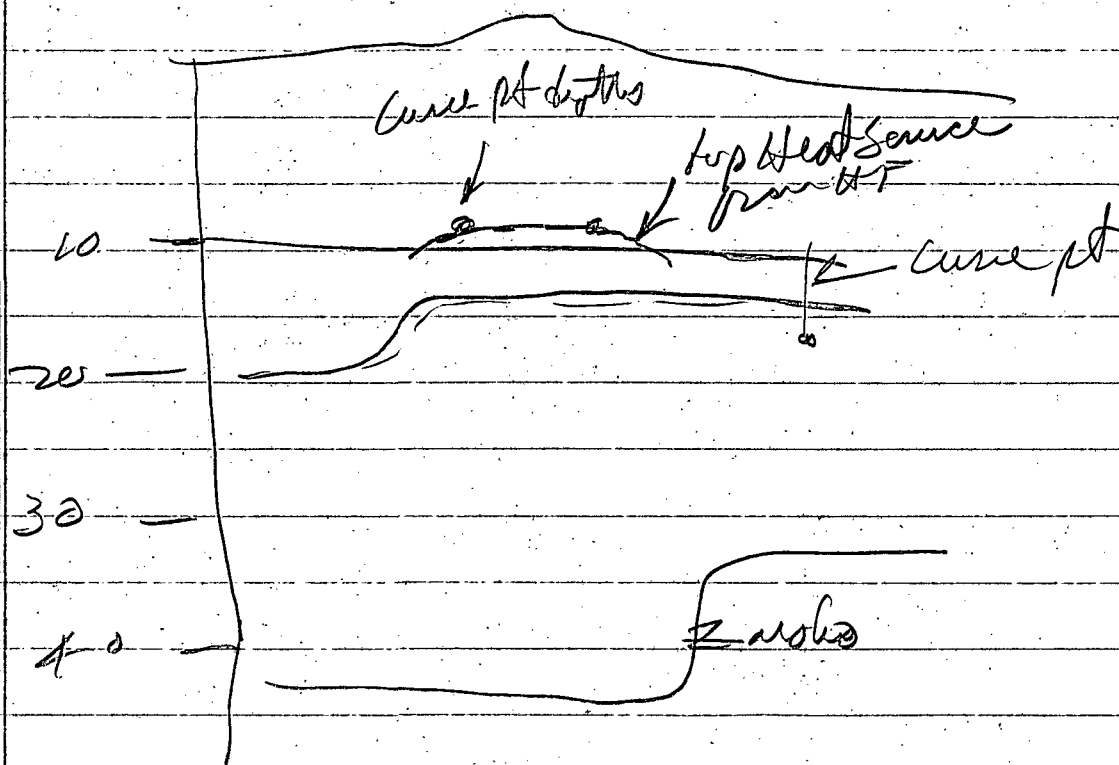 Curie pt depths
top Heat Source
from HF
10
Curie pt
20
30
40